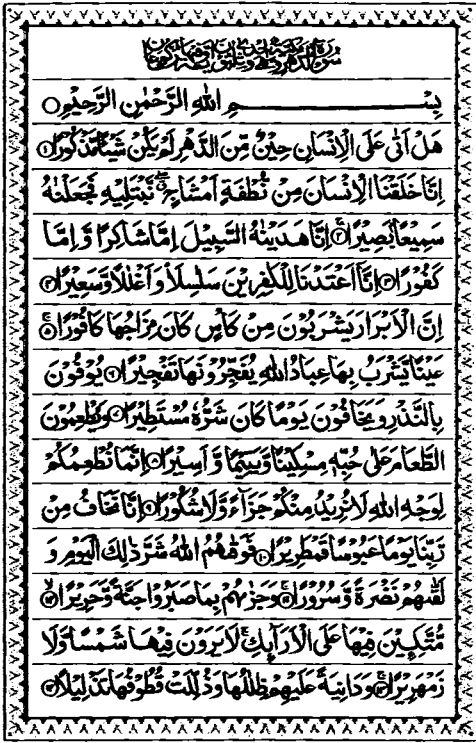 سُوْرَةُ الدَّهْرِ
بِسْمِ اللهِ الرَّحْمٰنِ الرَّحِيْمِ
هَلْ اَتٰى عَلَى الْاِنْسَانِ حِيْنٌ مِّنَ الدَّهْرِ لَمْ يَكُنْ شَيْئًا مَّذْكُوْرًا ۱
اِنَّا خَلَقْنَا الْاِنْسَانَ مِنْ نُّطْفَةٍ اَمْشَاجٍ نَّبْتَلِيْهِ فَجَعَلْنٰهُ
سَمِيْعًا بَصِيْرًا ۲ اِنَّا هَدَيْنٰهُ السَّبِيْلَ اِمَّا شَاكِرًا وَّ اِمَّا
كَفُوْرًا ۳ اِنَّا اَعْتَدْنَا لِلْكٰفِرِيْنَ سَلٰسِلَا۟ وَاَغْلٰلًا وَّسَعِيْرًا ۴
اِنَّ الْاَبْرَارَ يَشْرَبُوْنَ مِنْ كَاْسٍ كَانَ مِزَاجُهَا كَافُوْرًا ۵
عَيْنًا يَّشْرَبُ بِهَا عِبَادُ اللهِ يُفَجِّرُوْنَهَا تَفْجِيْرًا ۶ يُوْفُوْنَ
بِالنَّذْرِ وَيَخَافُوْنَ يَوْمًا كَانَ شَرُّهٗ مُسْتَطِيْرًا ۷ وَيُطْعِمُوْنَ
الطَّعَامَ عَلٰى حُبِّهٖ مِسْكِيْنًا وَّيَتِيْمًا وَّ اَسِيْرًا ۸ اِنَّمَا نُطْعِمُكُمْ
لِوَجْهِ اللهِ لَا نُرِيْدُ مِنْكُمْ جَزَآءً وَّلَا شُكُوْرًا ۹ اِنَّا نَخَافُ مِنْ
رَّبِّنَا يَوْمًا عَبُوْسًا قَمْطَرِيْرًا ۱۰ فَوَقٰهُمُ اللهُ شَرَّ ذٰلِكَ الْيَوْمِ وَ
لَقّٰىهُمْ نَضْرَةً وَّسُرُوْرًا ۱۱ وَجَزٰىهُمْ بِمَا صَبَرُوْا جَنَّةً وَّحَرِيْرًا ۱۲
مُّتَّكِـِٕيْنَ فِيْهَا عَلَى الْاَرَآئِكِ لَا يَرَوْنَ فِيْهَا شَمْسًا وَّلَا
زَمْهَرِيْرًا ۱۳ وَدَانِيَةً عَلَيْهِمْ ظِلٰلُهَا وَذُلِّلَتْ قُطُوْفُهَا تَذْلِيْلًا ۱۴